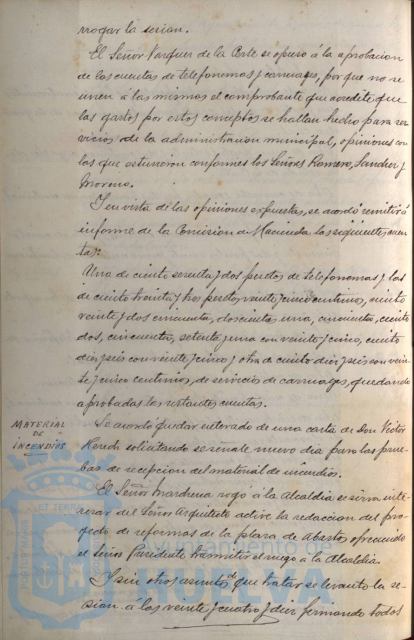 rrogar la sesion.
El Señor Vazquez de la Corte se opuso á la aprobacion
de las cuentas de telefonemas y carruages, por que no se
unen á las mismas el comprobante que acredite que
los gastos por estos conceptos se hallan hecho para ser-
vicios de la administracion municipal, opiniones con
las que estuvieron conformes los Señores Romero, Sanchez y
Moreno.
Y en vista de las opiniones espuestas, se acordó remitir á
informe de la Comision de Hacienda las siguientes cuen-
tas:
Una de ciento sesenta y dos pesetas de telefonemas y las
de ciento treinta y tres pesetas veinte y cinco centimos, ciento
veinte y dos cincuenta, doscientas una, cincuenta, ciento
dos, cincuenta, setenta y una con veinte y cinco, ciento
diez y seis con veinte y cinco y otra de ciento diez y seis con vein-
te y cinco centimos, de servicios de carruages, quedando
aprobadas las restantes cuentas.
MATERIAL
DE
INCENDIOS
Se acordó quedar enterado de una carta de Don Victor
Rendi solicitando se señale nuevo dia para las prue-
bas de recepcion del material de incendios.
El Señor Marchena rogó á la Alcaldia se sirva inte-
resar del Señor Arquitecto active la redaccion del pro-
yecto de reformas de la plaza de Abastos ofreciendo
el Señor Presidente trasmitir el ruego á la Alcaldia.
Y sin otros asuntos de que tratar se levanto la se-
sion á las veinte y cuatro y diez firmando todos
HUELVA